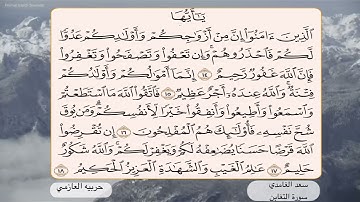 يَٰٓأَيُّهَا
ٱلَّذِينَ ءَامَنُوٓا۟ إِنَّ مِنْ أَزْوَٰجِكُمْ وَأَوْلَٰدِكُمْ عَدُوًّا
لَّكُمْ فَٱحْذَرُوهُمْ ۚ وَإِن تَعْفُوا۟ وَتَصْفَحُوا۟ وَتَغْفِرُوا۟
فَإِنَّ ٱللَّهَ غَفُورٌ رَّحِيمٌ ١٤ إِنَّمَآ أَمْوَٰلُكُمْ وَأَوْلَٰدُكُمْ
فِتْنَةٌ ۚ وَٱللَّهُ عِندَهُۥٓ أَجْرٌ عَظِيمٌ ١٥ فَٱتَّقُوا۟ ٱللَّهَ مَا ٱسْتَطَعْتُمْ
وَٱسْمَعُوا۟ وَأَطِيعُوا۟ وَأَنفِقُوا۟ خَيْرًا لِّأَنفُسِكُمْ ۗ وَمَن يُوقَ
شُحَّ نَفْسِهِۦ فَأُو۟لَٰٓئِكَ هُمُ ٱلْمُفْلِحُونَ ١٦ إِن تُقْرِضُوا۟
ٱللَّهَ قَرْضًا حَسَنًا يُضَٰعِفْهُ لَكُمْ وَيَغْفِرْ لَكُمْ ۚ وَٱللَّهُ شَكُورٌ
حَلِيمٌ ١٧ عَٰلِمُ ٱلْغَيْبِ وَٱلشَّهَٰدَةِ ٱلْعَزِيزُ ٱلْحَكِيمُ ١٨
سعد الغامدي
سورة التغابن
حربيه العازمي